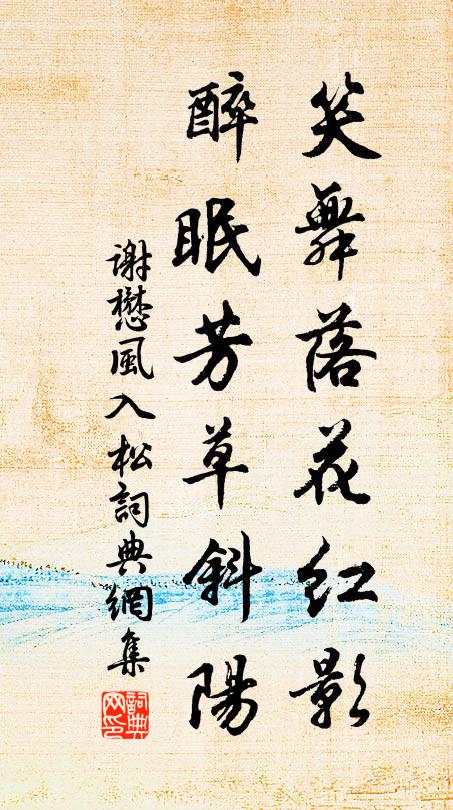 笑舞落花红影
醉眠芳草斜陽
謝懋風入松詞典網集
詞典網印